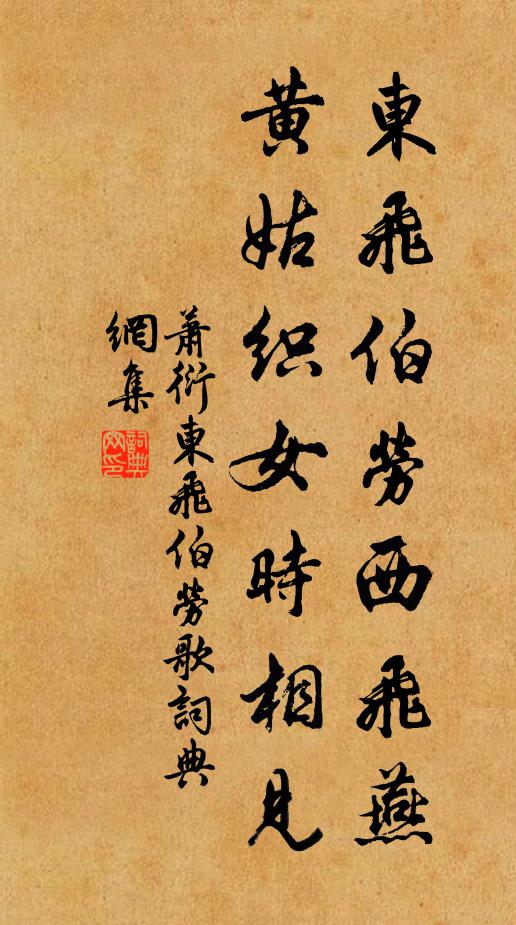 東飛伯勞西飛燕
黃姑织女時相見
蕭衍東飛伯勞歌詞典
網集
詞典
网印